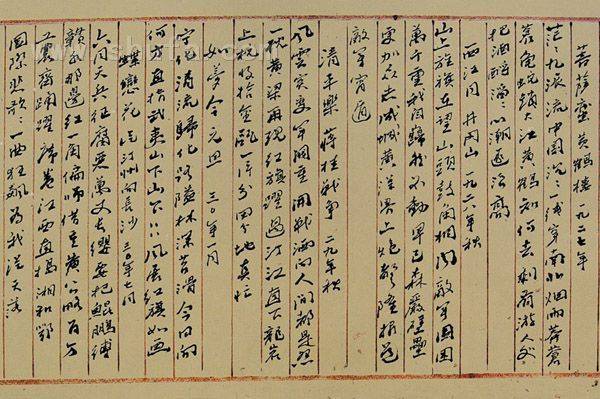 菩萨蛮 黄鹤楼 一九二七年
茫々九派流中国沉々一线穿南北烟雨莽苍
苍龟蛇锁大江黄鹤知何去剩有游人处
把酒酹滔々心潮逐浪高
西江月 井冈山 一九二八年秋
山下旌旗在望山头鼓角相闻敌军围困
萬千重我自歸然不动早已森嚴壁壘
更加众志成城黄洋界上炮声隆报道
敌军宵遁
清平樂 蒋桂战争 二九年秋
风雲突变军阀重开战洒向人间都是怨
一枕黄粱再现红旗躍过汀江直下龍岩
上杭收拾金瓯一片分田分地真忙
如夢令 元旦 三〇年一月
宁化清流歸化路隘林深苔滑今日向
何方直指武夷山下山下々々风展红旗如画
蝶恋花 从汀州向长沙 三〇年七月
六月天兵征腐恶萬丈长缨要把鲲鹏缚
赣水那边红一角偏师借重黄公略百万
工農齐踊躍席卷江西直捣湘和鄂
国际悲歌々一曲狂飙为我从天落